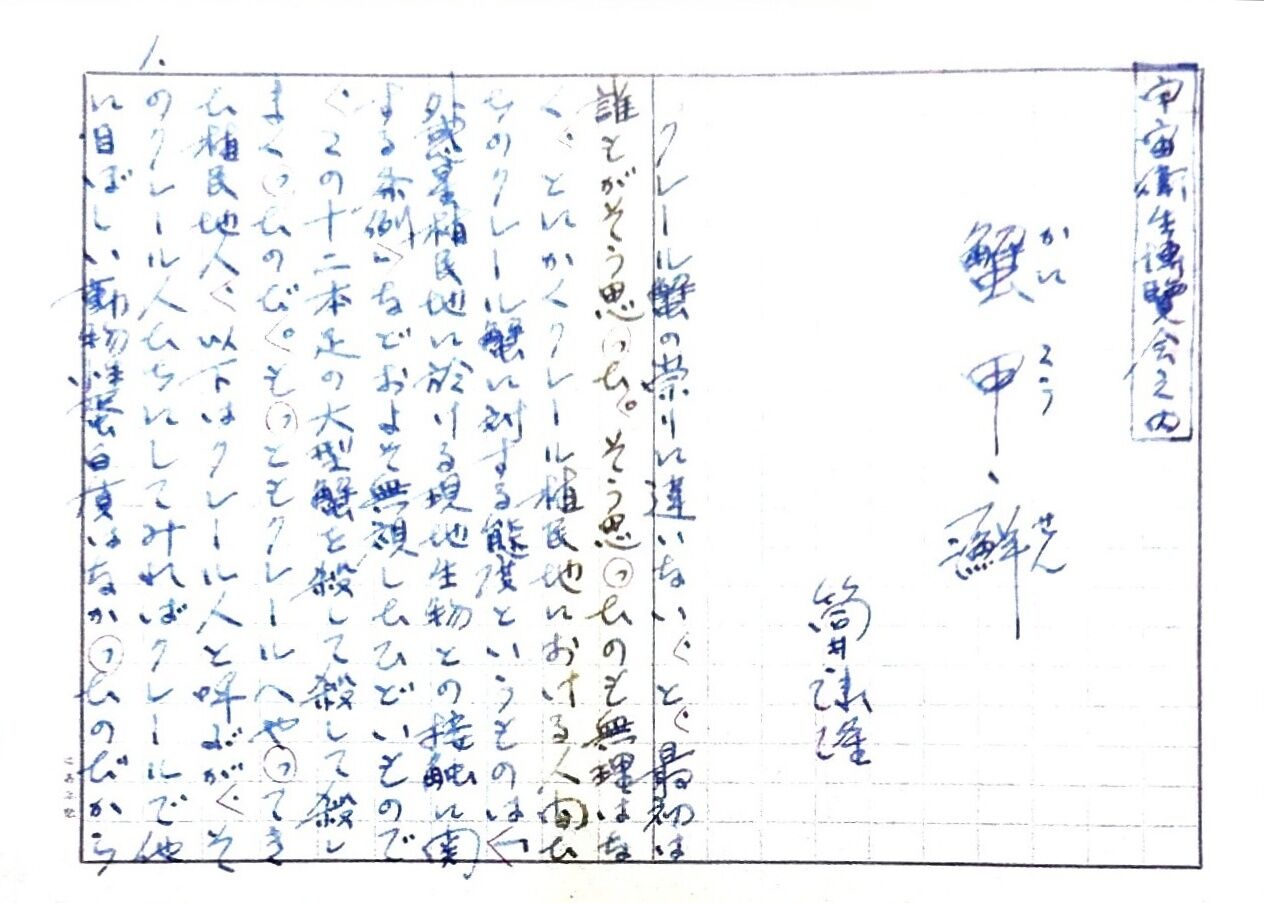 宇宙衛生博覧会之内
蟹甲癬
かに こう せん
筒井康隆
1.
クレール蟹の祟りに違いない、と、最初は
誰もがそう思った。そう思ったのも無理はな
く、とにかくクレール植民地における人間た
ちのクレール蟹に対する態度というものは「
外惑星植民地に於ける現地生物との接触に関
する条例」などおよそ無視したひどいもので
、この十二本足の大型蟹を殺して殺して殺し
まくったのだ。もっともクレールへやってき
た植民地人、以下はクレール人と呼ぶが、そ
のクレール人たちにしてみればクレールで他
に目ぼしい動物性蛋白質はなかったのだから